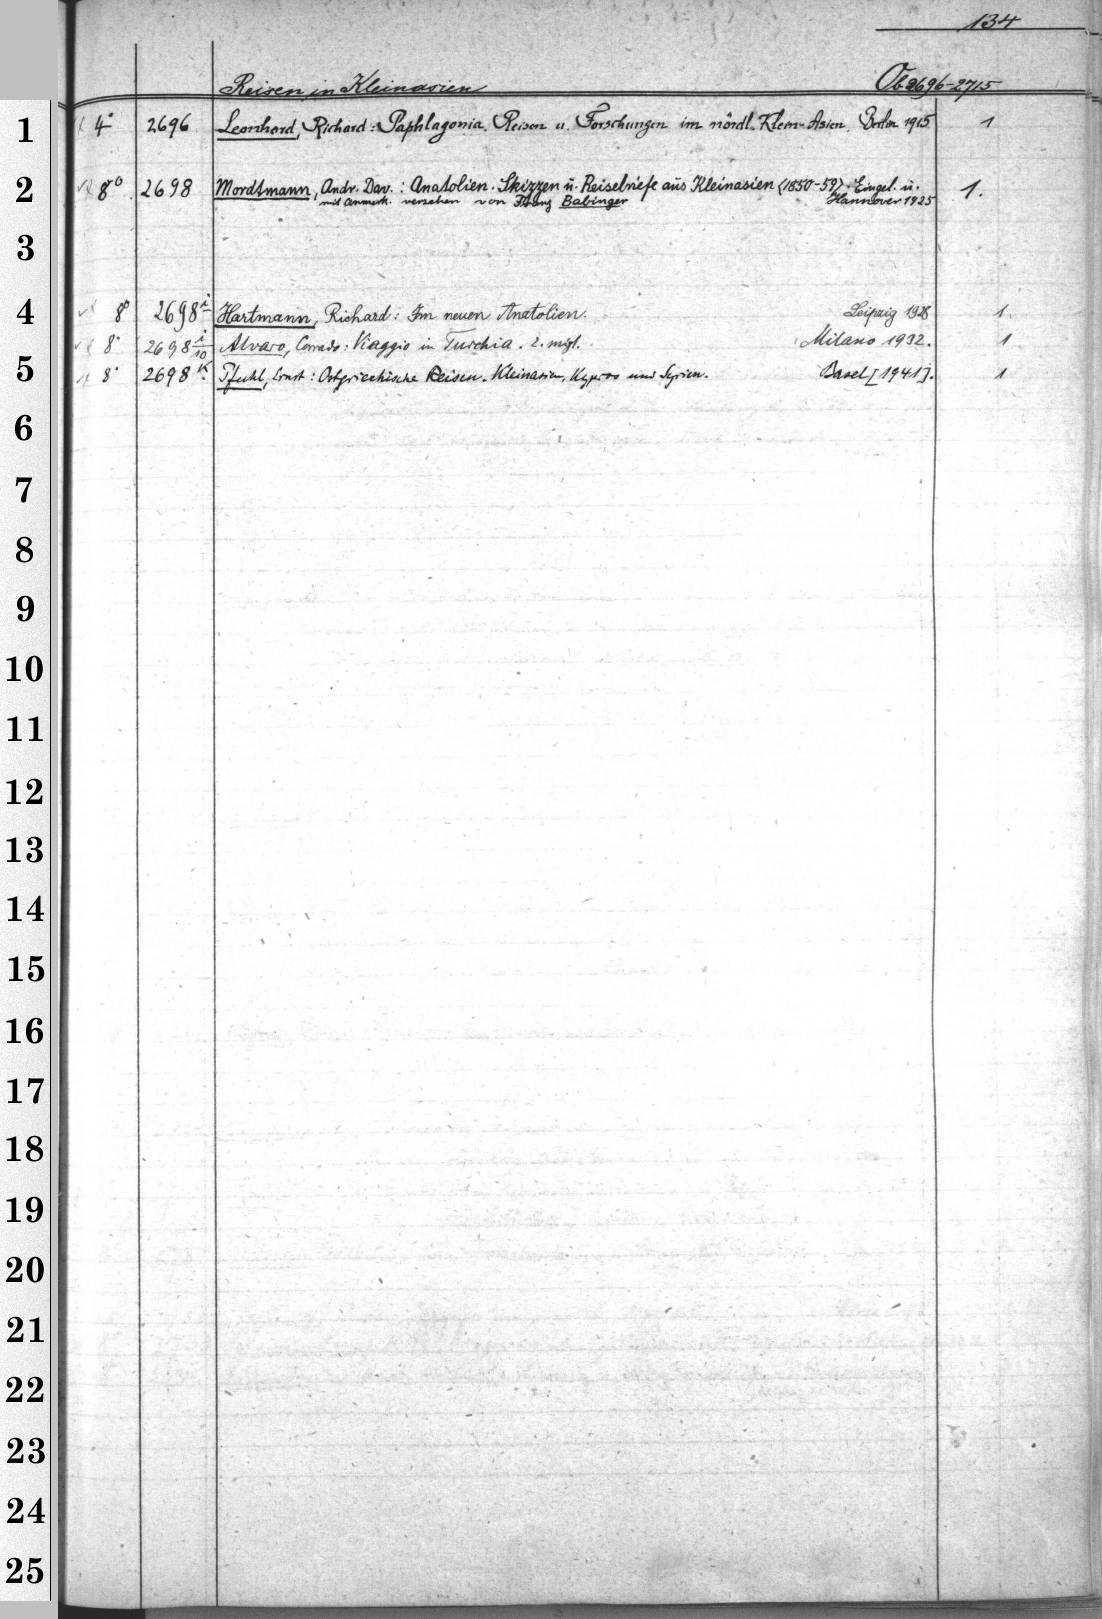 134
Reisen in Kleinasien Ob 2696-2715
1 4° 2696 Leonhard, Richard: Paphlagonia. Reisen u. Forschungen im nördl. Klein-Asien. Berlin 1915 1
2 8° 2698 Mordtmann, Andr. Dav.: Anatolien. Skizzen u. Reisebriefe aus Kleinasien (1850-59). Eingel. u. 1.
mit Anmerk. versehen von Franz Babinger Hannover 1925
3
4 8° 2698 i Hartmann, Richard: Im neuen Anatolien. Leipzig 1928 1.
8° 2698 i/10 Alvaro, Corrado: Viaggio in Turchia. 2. migl. Milano 1932. 1
5 8° 2698 k. Pfuhl, Ernst: Ostgriechische Reisen. Kleinasien, Kypros und Syrien. Basel [1941]. 1
6
7
8
9
10
11
12
13
14
15
16
17
18
19
20
21
22
23
24
25